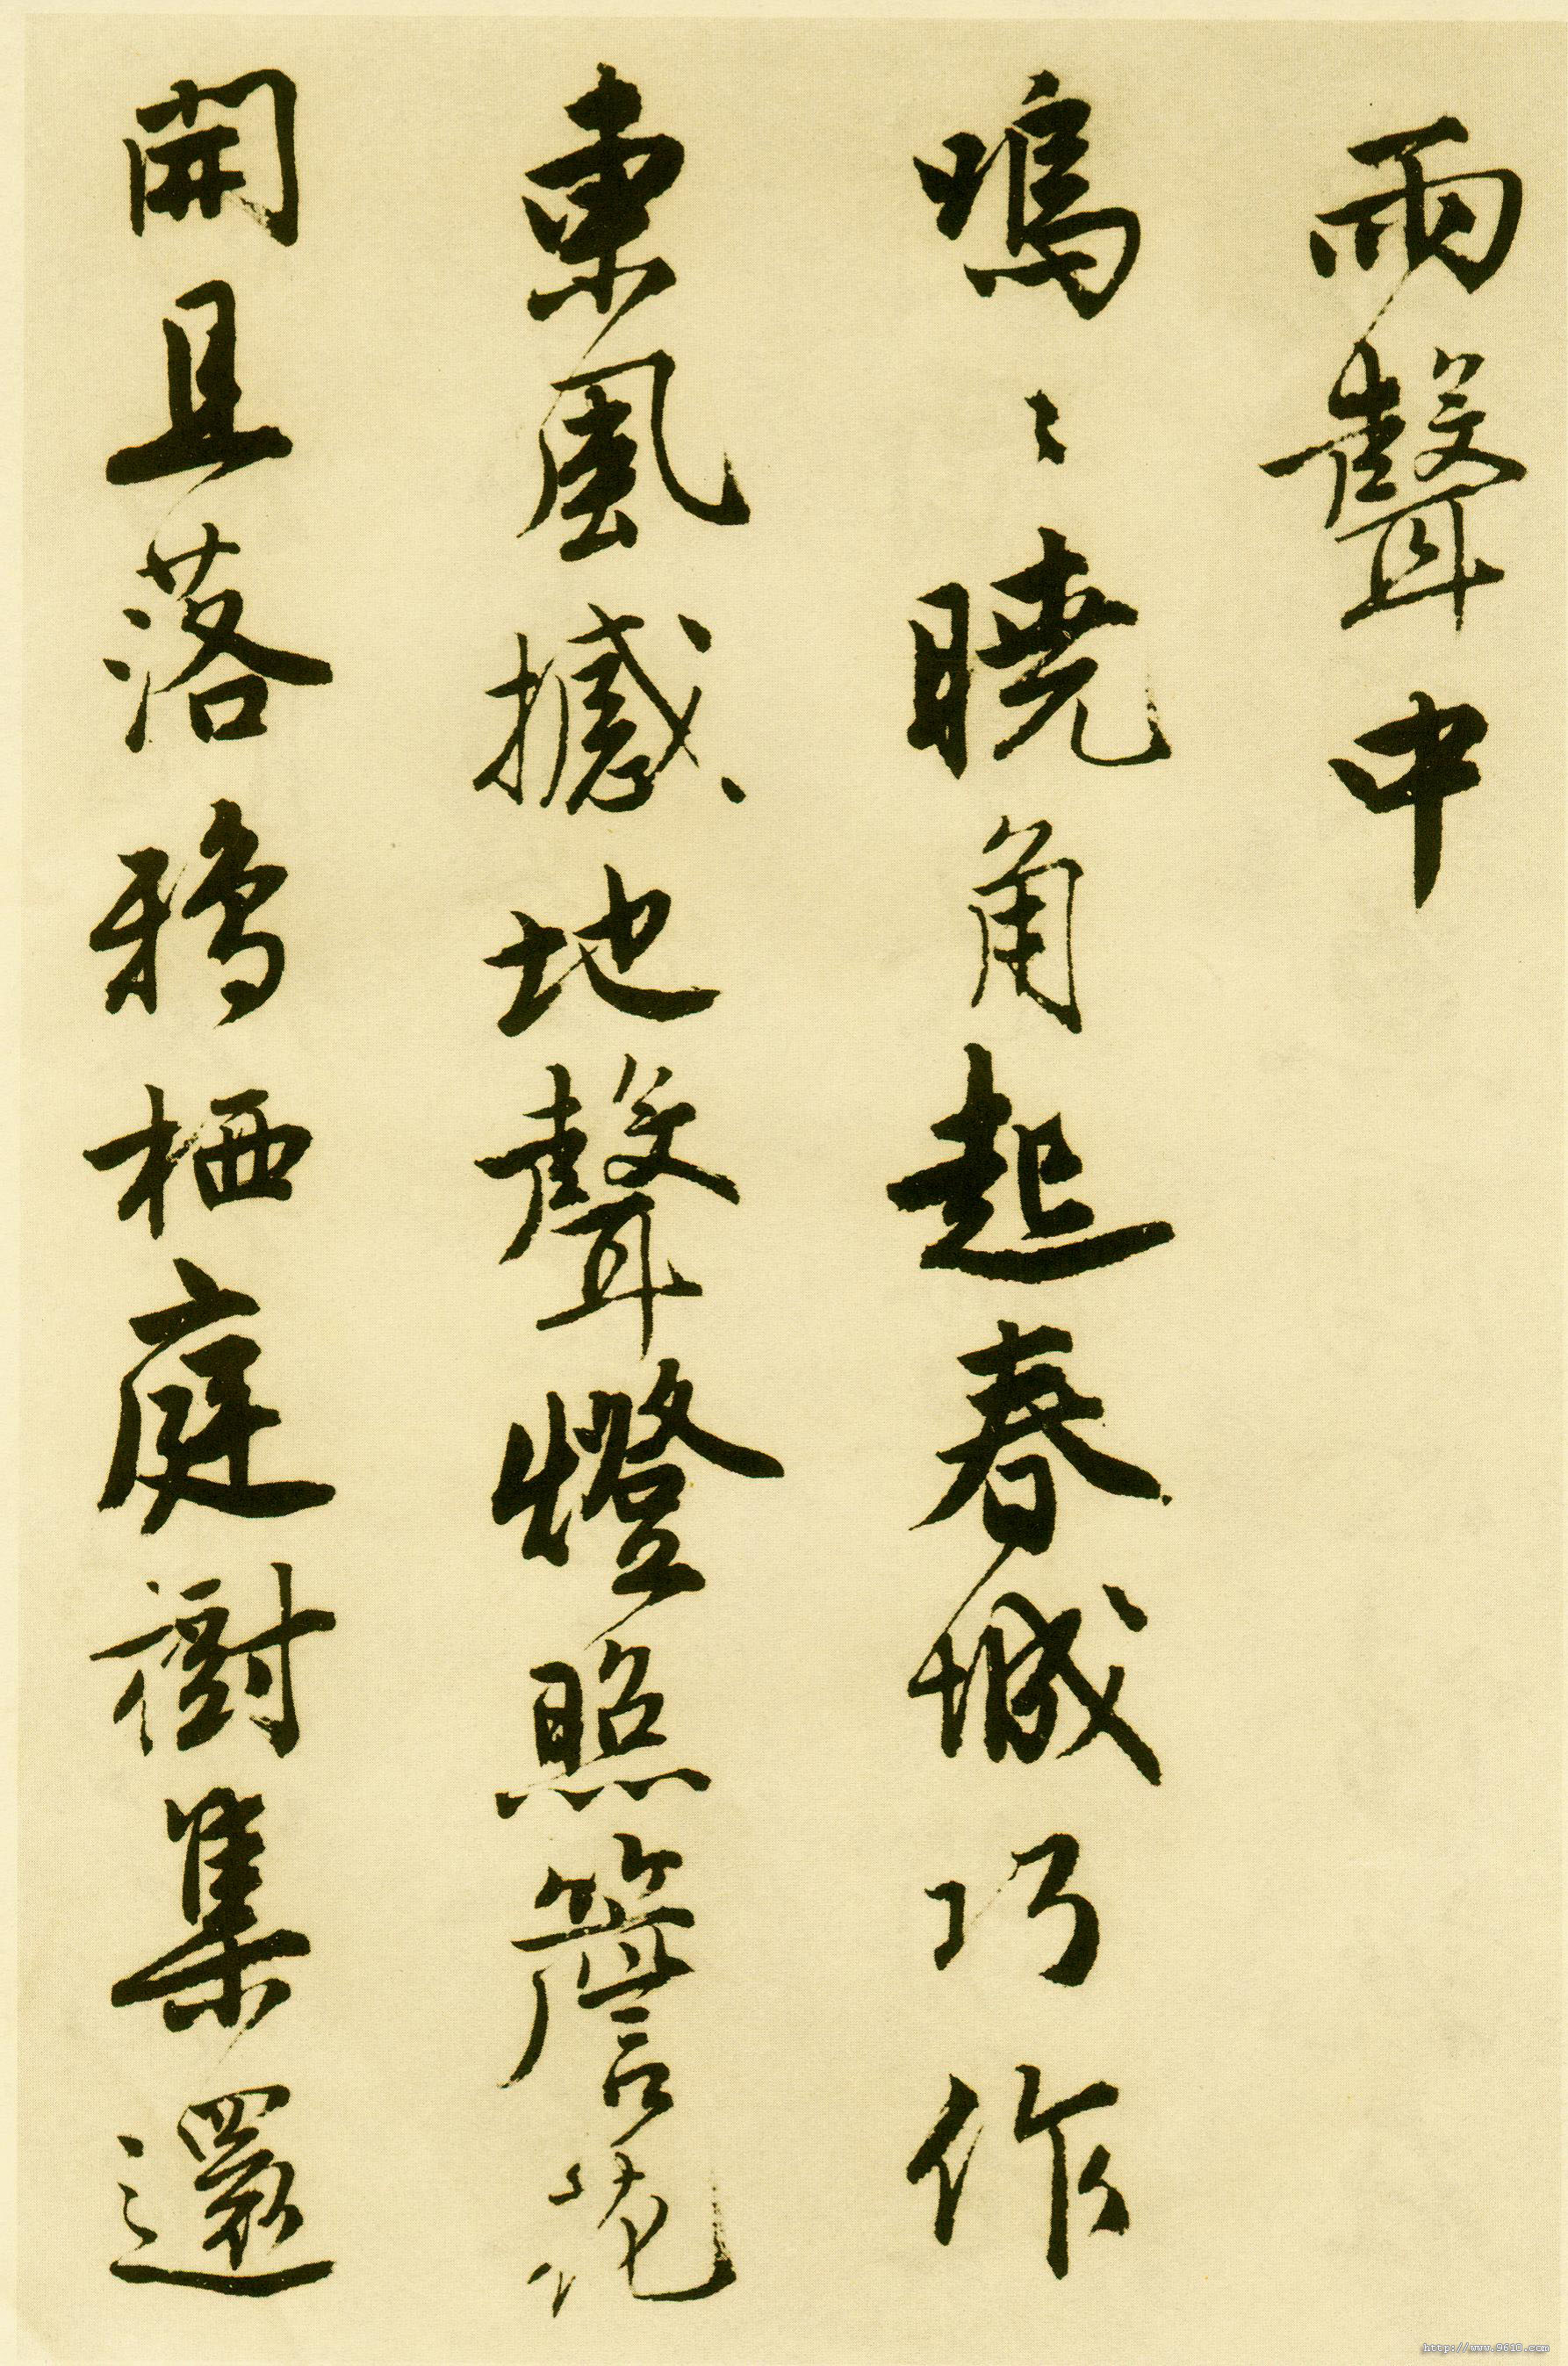 雨聲中
嗚〻曉角起春城巧作
東風撼地聲燈照簷花
開且落鴉栖庭樹集還
http://www.9610.com